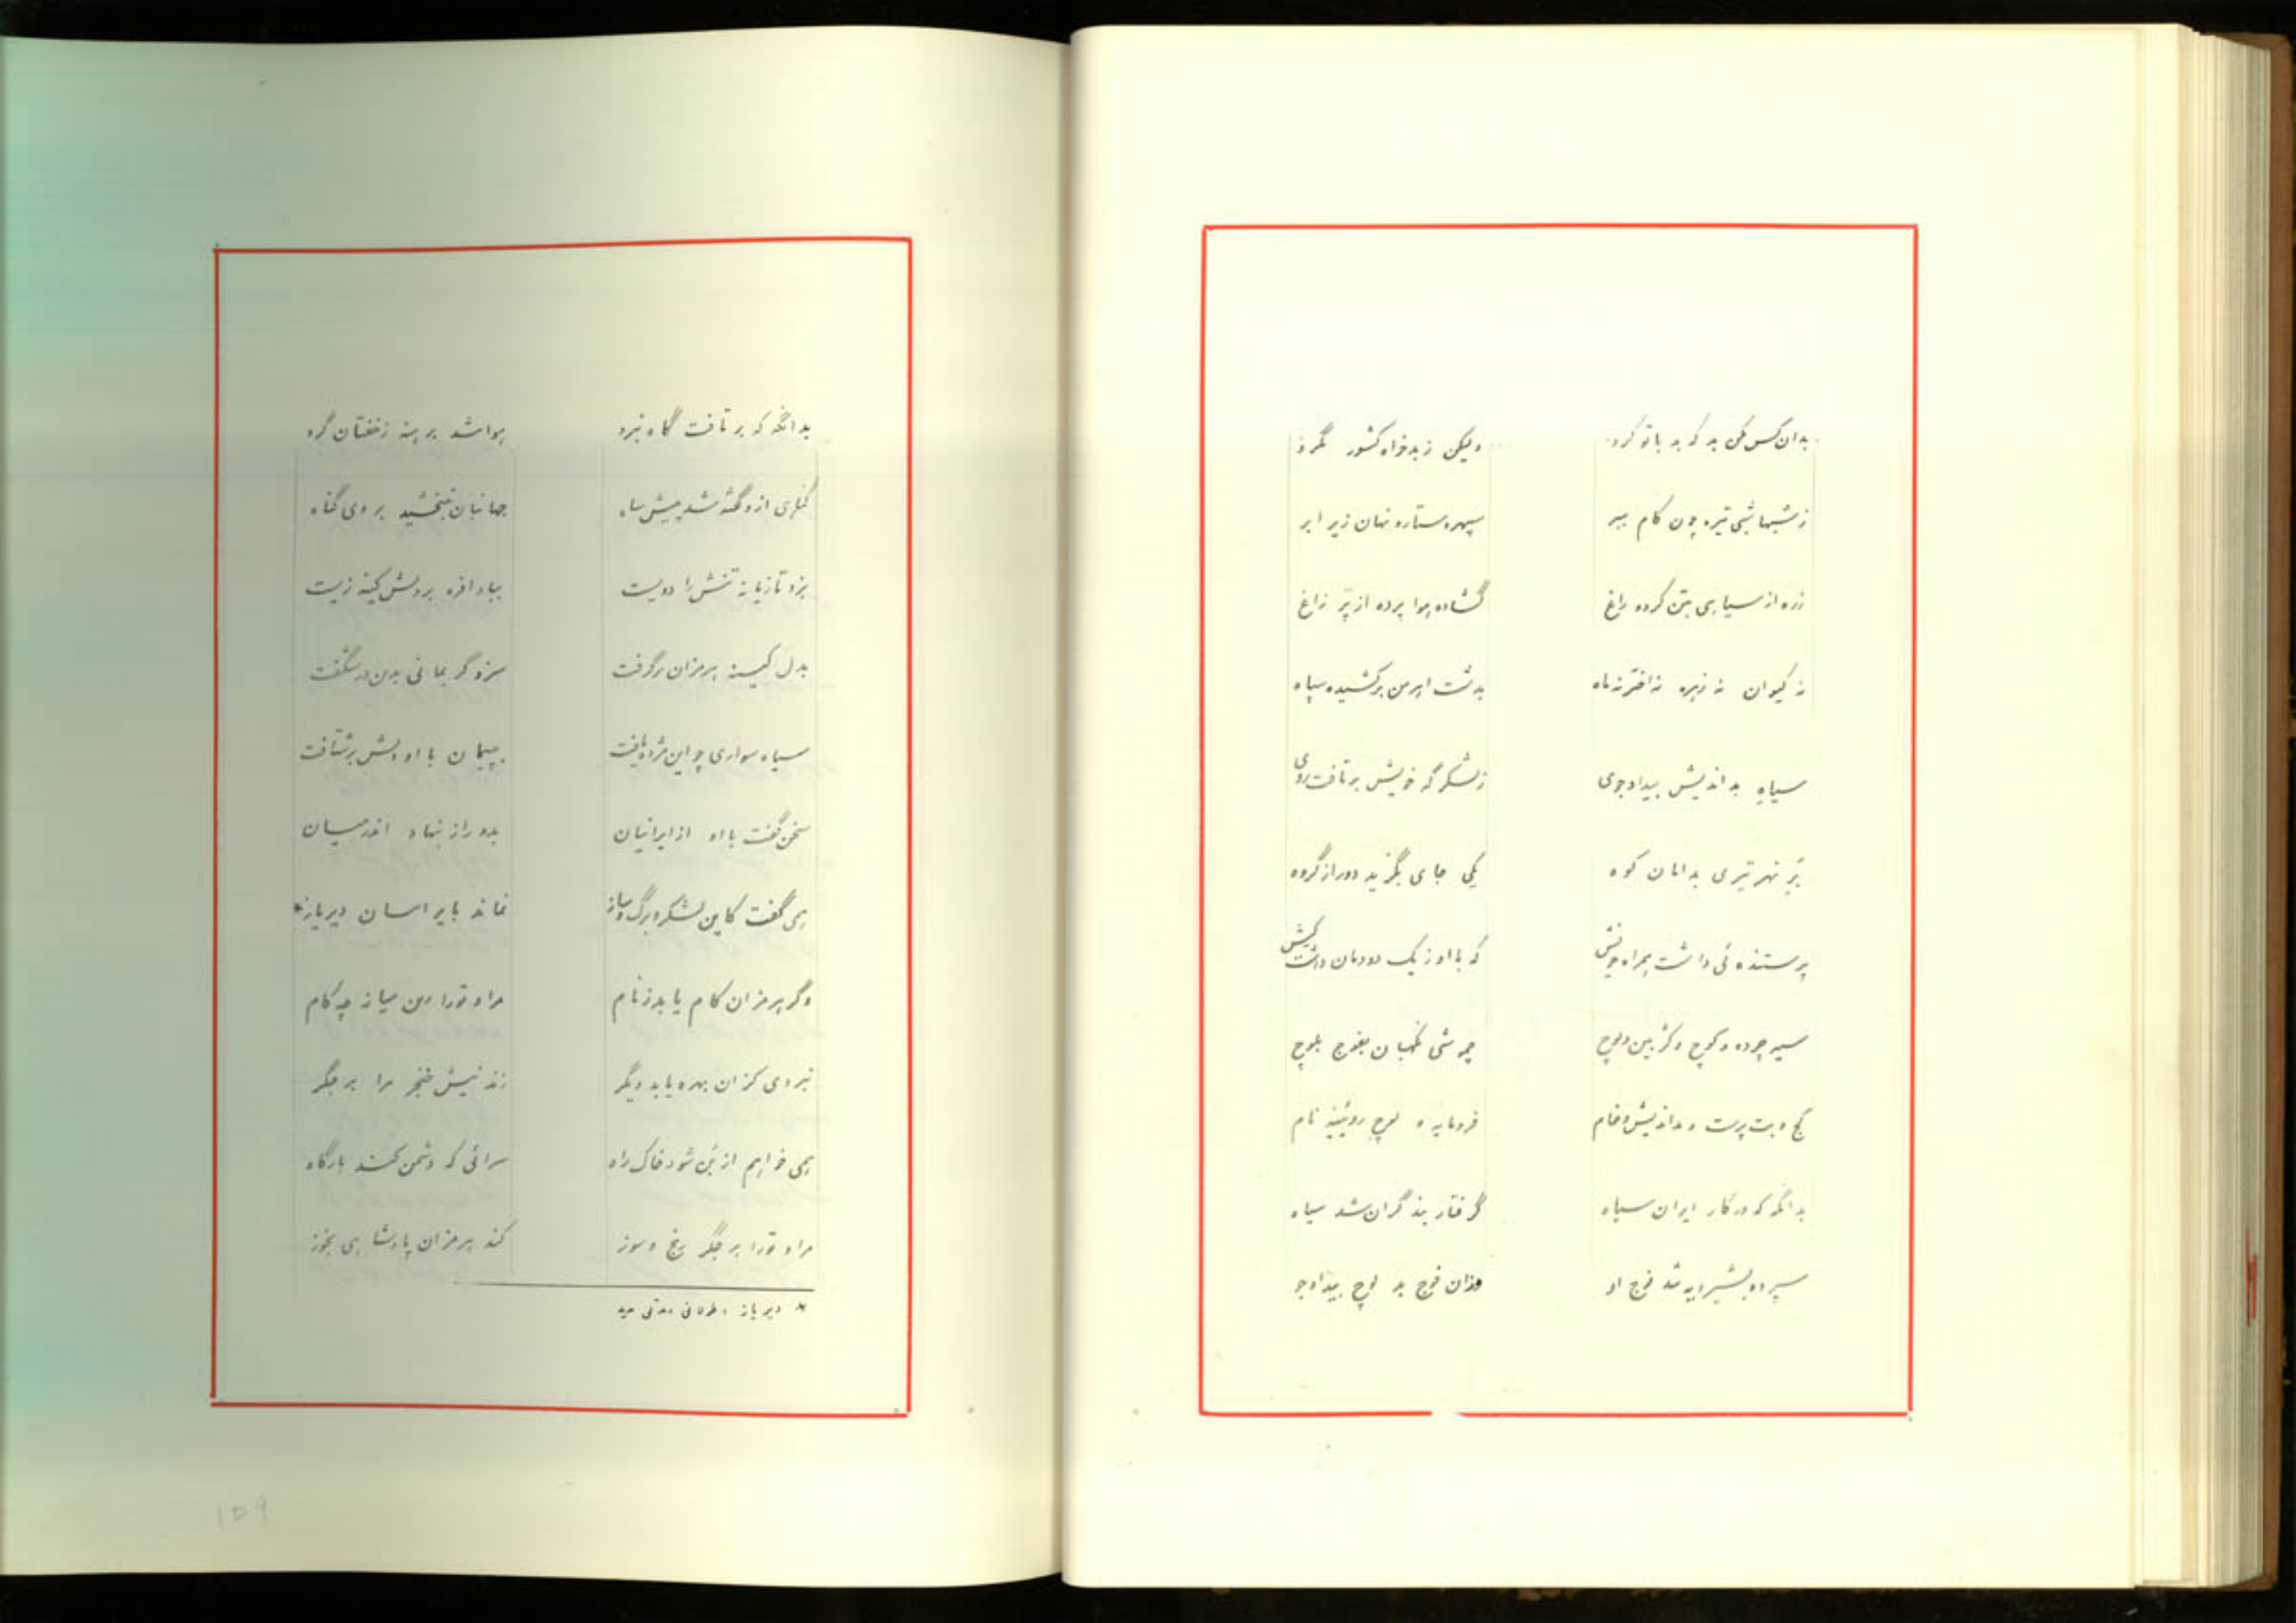 بدان کس مکن بد که بد با تو کرد ولیکن ز بدخواه کشور مگرد
ز شبها شبی تیره چون کام ببر سپهر و ستاره نهان زیر ابر
زره از سیاهی بتن کرده راغ گشاده هوا پرده از پرّ زاغ
نه کیوان نه زهره نه اختر نه ماه بدشت اهرمن برکشیده سپاه
سیاهِ بد اندیش بیدادجوی ز لشکرگه خویش برتافت روی
بَرِ نهر تیری بدامان کوه یکی جای بگزید دور از گروه
پرستنده ئی داشت همراه خویش که با او ز یک دودمان داشت کیش
سیه چرده و کوچ و کژبین و لوچ نگهبان بفوج بلوچ
کج و بت پرست و بداندیش و خام فرومایه لوچ روئینه نام
بدانگه که در کار ایران سیاه گرفتار بند گران شد سیاه
سپرده بشیرویه شد فوج او وزان فوج بد لوچ بیدادجو
بدانگه که برتافت گاه نبرد هوا شد بر پنه ز خفتان گرد
گناهی از و گفته شد پیش شاه جهانبان نبخشید بر وی گناه
بزد تازیانه تنش را دویست بباد افره بر دلش کینه زیست
بدل کینه هرمزان برگرفت سزد گر بمانی بدین در شگفت
سیاه سواری چو این مژده یافت بپیمان با او دلش برشتافت
سخن گفت با او از ایرانیان بدو راز بنهاد اندر میان
همی گفت کاین لشکر و برگ و ساز نماند بایر اسان دیریاز*
وگر هرمزان کام یابد ز نام مرا و تو را زین میان چه کام
نبردی کزان بهره یابد دیگر زند نیش خنجر مرا بر جگر
همی خواهم از بُن شود خاک راه سرائی که دشمن کند بارگاه
مرا و تو را بر جگر رنج و سوز کند هرمزان پادشاهی بخوز
* دیریاز : طولانی مدتی مدید
١٥٩